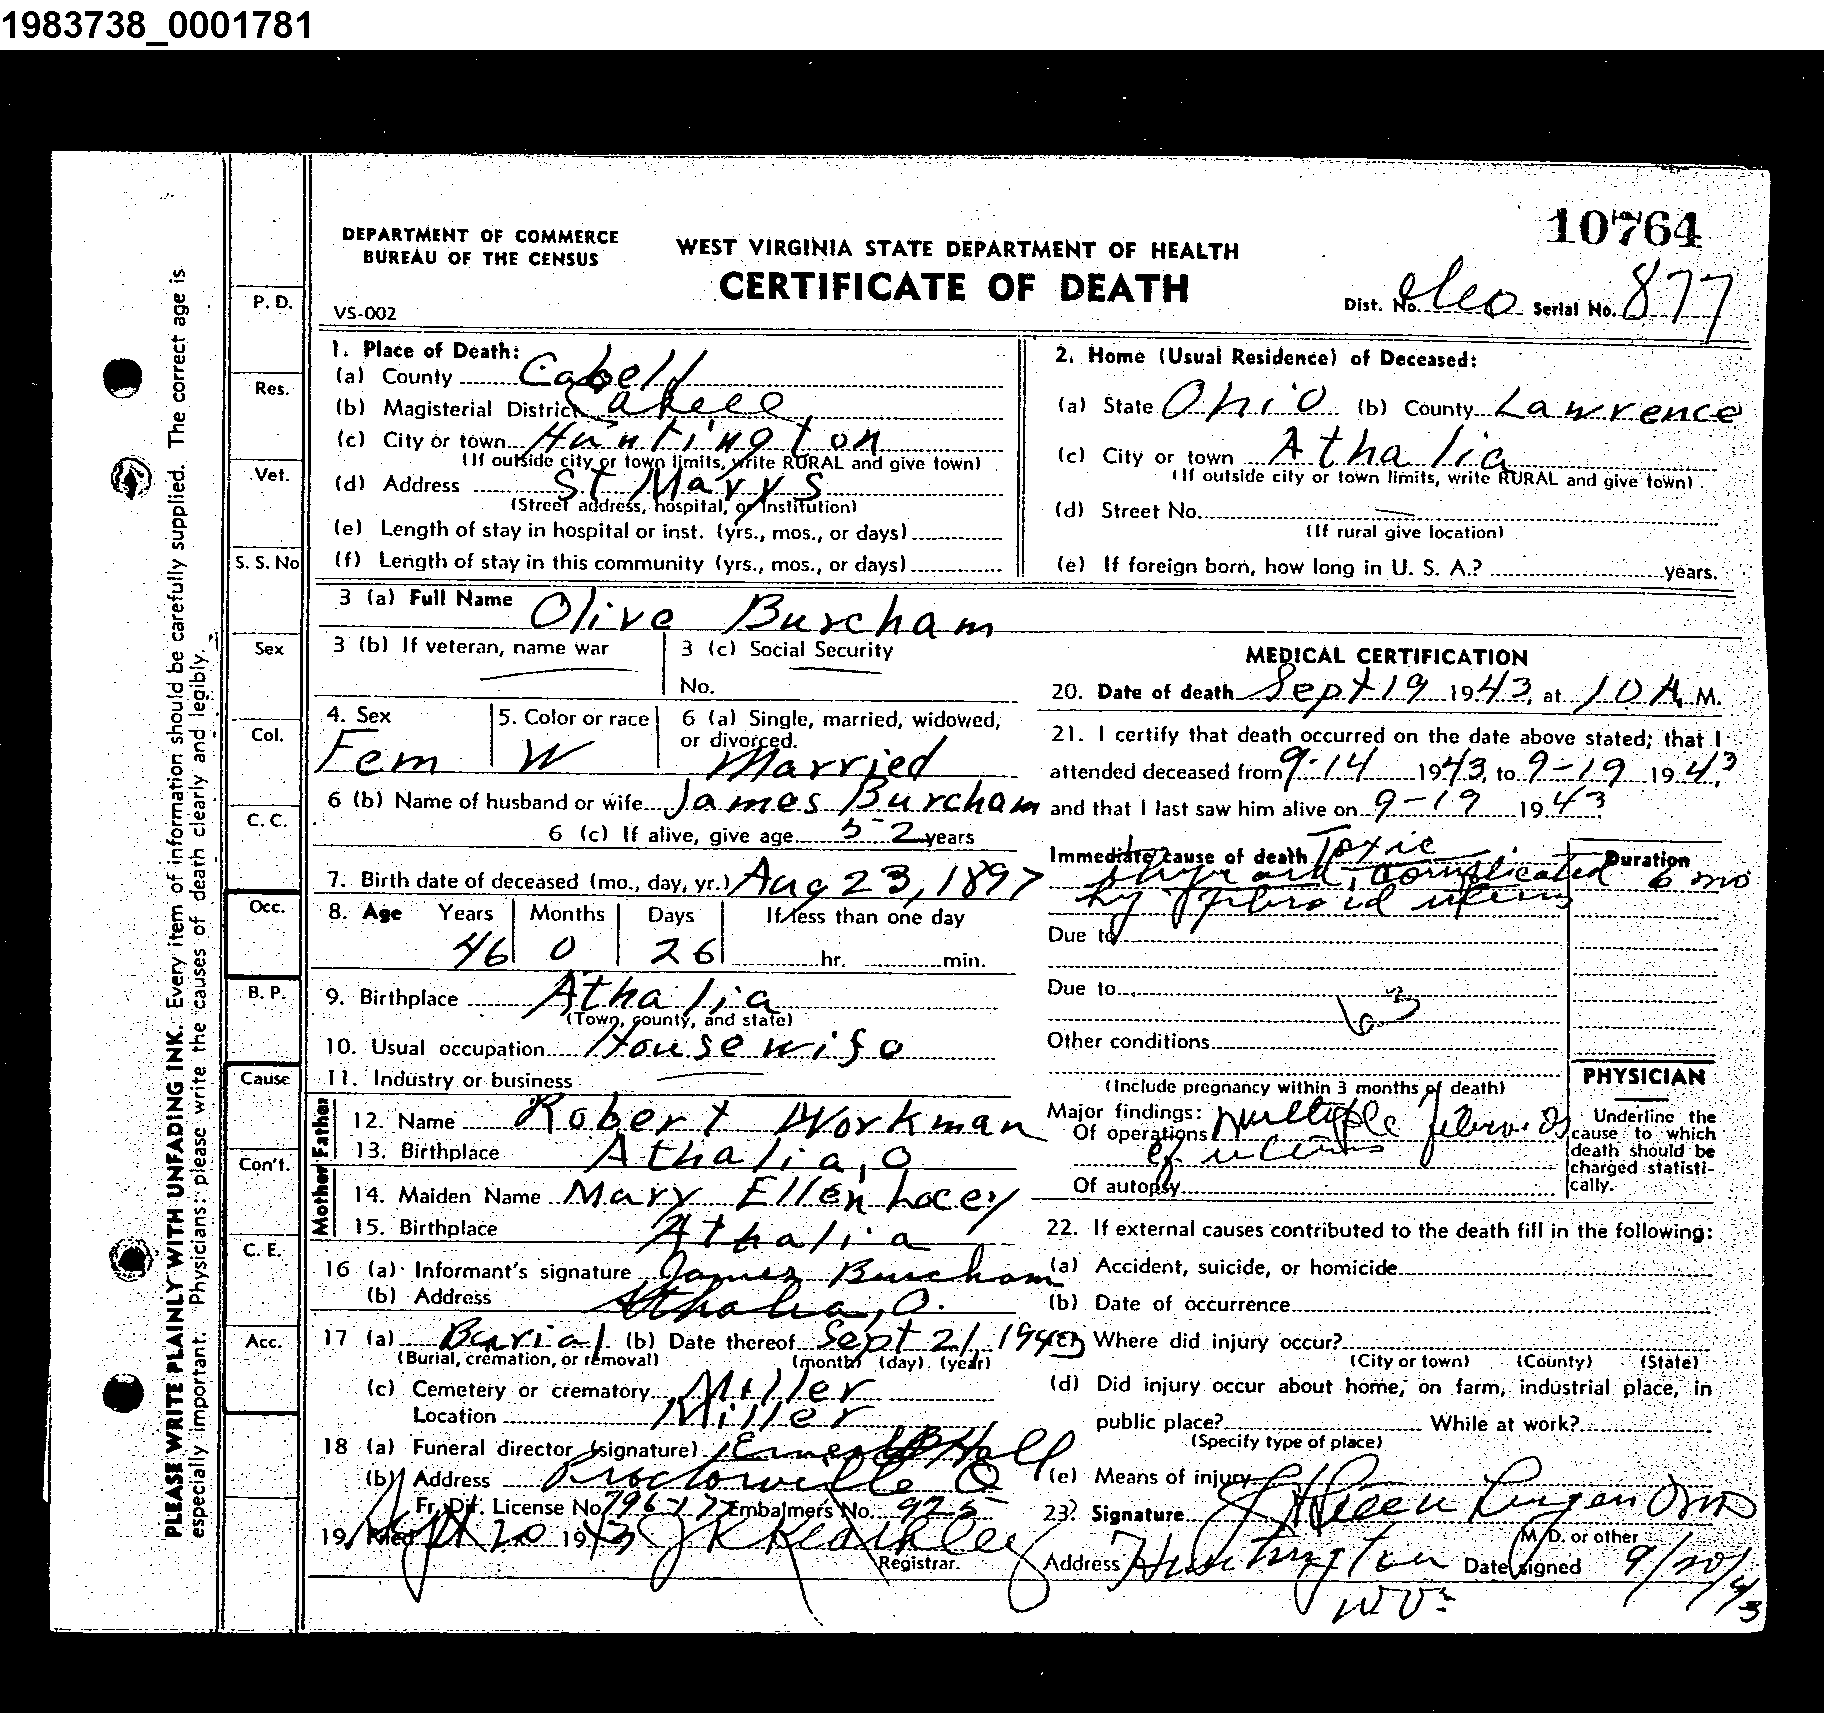 1983738_0001781
10764
DEPARTMENT OF COMMERCE
BUREAU OF THE CENSUS
WEST VIRGINIA STATE DEPARTMENT OF HEALTH
CERTIFICATE OF DEATH
VS-002
Dist. No. Serial No. 877
PLEASE WRITE PLAINLY WITH UNFADING INK. Every item of information should be carefully supplied. The correct age is
especially important. Physicians: please write the causes of death clearly and legibly.
P. D.
Res.
Vet.
S. S. No
Sex
Col.
C. C.
Occ.
B. P.
Cause
Con't.
C. E.
Acc.
1. Place of Death:
(a) County Cabell
(b) Magisterial District Cabell
(c) City or town Huntington
(If outside city or town limits, write RURAL and give town)
(d) Address St Marys
(Street address, hospital, or institution)
(e) Length of stay in hospital or inst. (yrs., mos., or days)
(f) Length of stay in this community (yrs., mos., or days)
2. Home (Usual Residence) of Deceased:
(a) State Ohio (b) County Lawrence
(c) City or town Athalia
(If outside city or town limits, write RURAL and give town)
(d) Street No. —
(If rural give location)
(e) If foreign born, how long in U. S. A.? years.
3 (a) Full Name Olive Burcham
3 (b) If veteran, name war —
3 (c) Social Security —
No.
4. Sex Fem
5. Color or race W
6 (a) Single, married, widowed,
or divorced. Married
6 (b) Name of husband or wife James Burcham
6 (c) If alive, give age 52 years
7. Birth date of deceased (mo., day, yr.) Aug 23, 1897
8. Age Years Months Days If less than one day
46 0 26 hr. min.
9. Birthplace Athalia
(Town, county, and state)
10. Usual occupation Housewife
11. Industry or business —
Father
12. Name Robert Workman
13. Birthplace Athalia, O
Mother
14. Maiden Name Mary Ellen Lacey
15. Birthplace Athalia
16 (a) Informant's signature James Burcham
(b) Address Athalia, O.
17 (a) Burial (b) Date thereof Sept 21, 1943
(Burial, cremation, or removal) (month) (day) (year)
(c) Cemetery or crematory Miller
Location Miller
18 (a) Funeral director (signature) Ernest B Hall
(b) Address Proctorville O
Fr. Dir. License No. Embalmers No. 925
19. Filed Sept 20 1943
Registrar.
MEDICAL CERTIFICATION
20. Date of death Sept 19 1943, at 10 A. M.
21. I certify that death occurred on the date above stated; that I
attended deceased from 9-14 1943, to 9-19 1943,
and that I last saw him alive on 9-19 1943
Immediate cause of death Toxic Duration
thyroid, complicated 6 mo
by fibroid uterus
Due to
Due to
63
Other conditions
(Include pregnancy within 3 months of death)
Major findings:
Of operations Multiple fibroids
of uterus
Of autopsy
PHYSICIAN
Underline the
cause to which
death should be
charged statisti-
cally.
22. If external causes contributed to the death fill in the following:
(a) Accident, suicide, or homicide
(b) Date of occurrence
(c) Where did injury occur?
(City or town) (County) (State)
(d) Did injury occur about home, on farm, industrial place, in
public place? While at work?
(Specify type of place)
(e) Means of injury
23. Signature
M. D. or other
Address Huntington Date signed 9/20/43
W Va